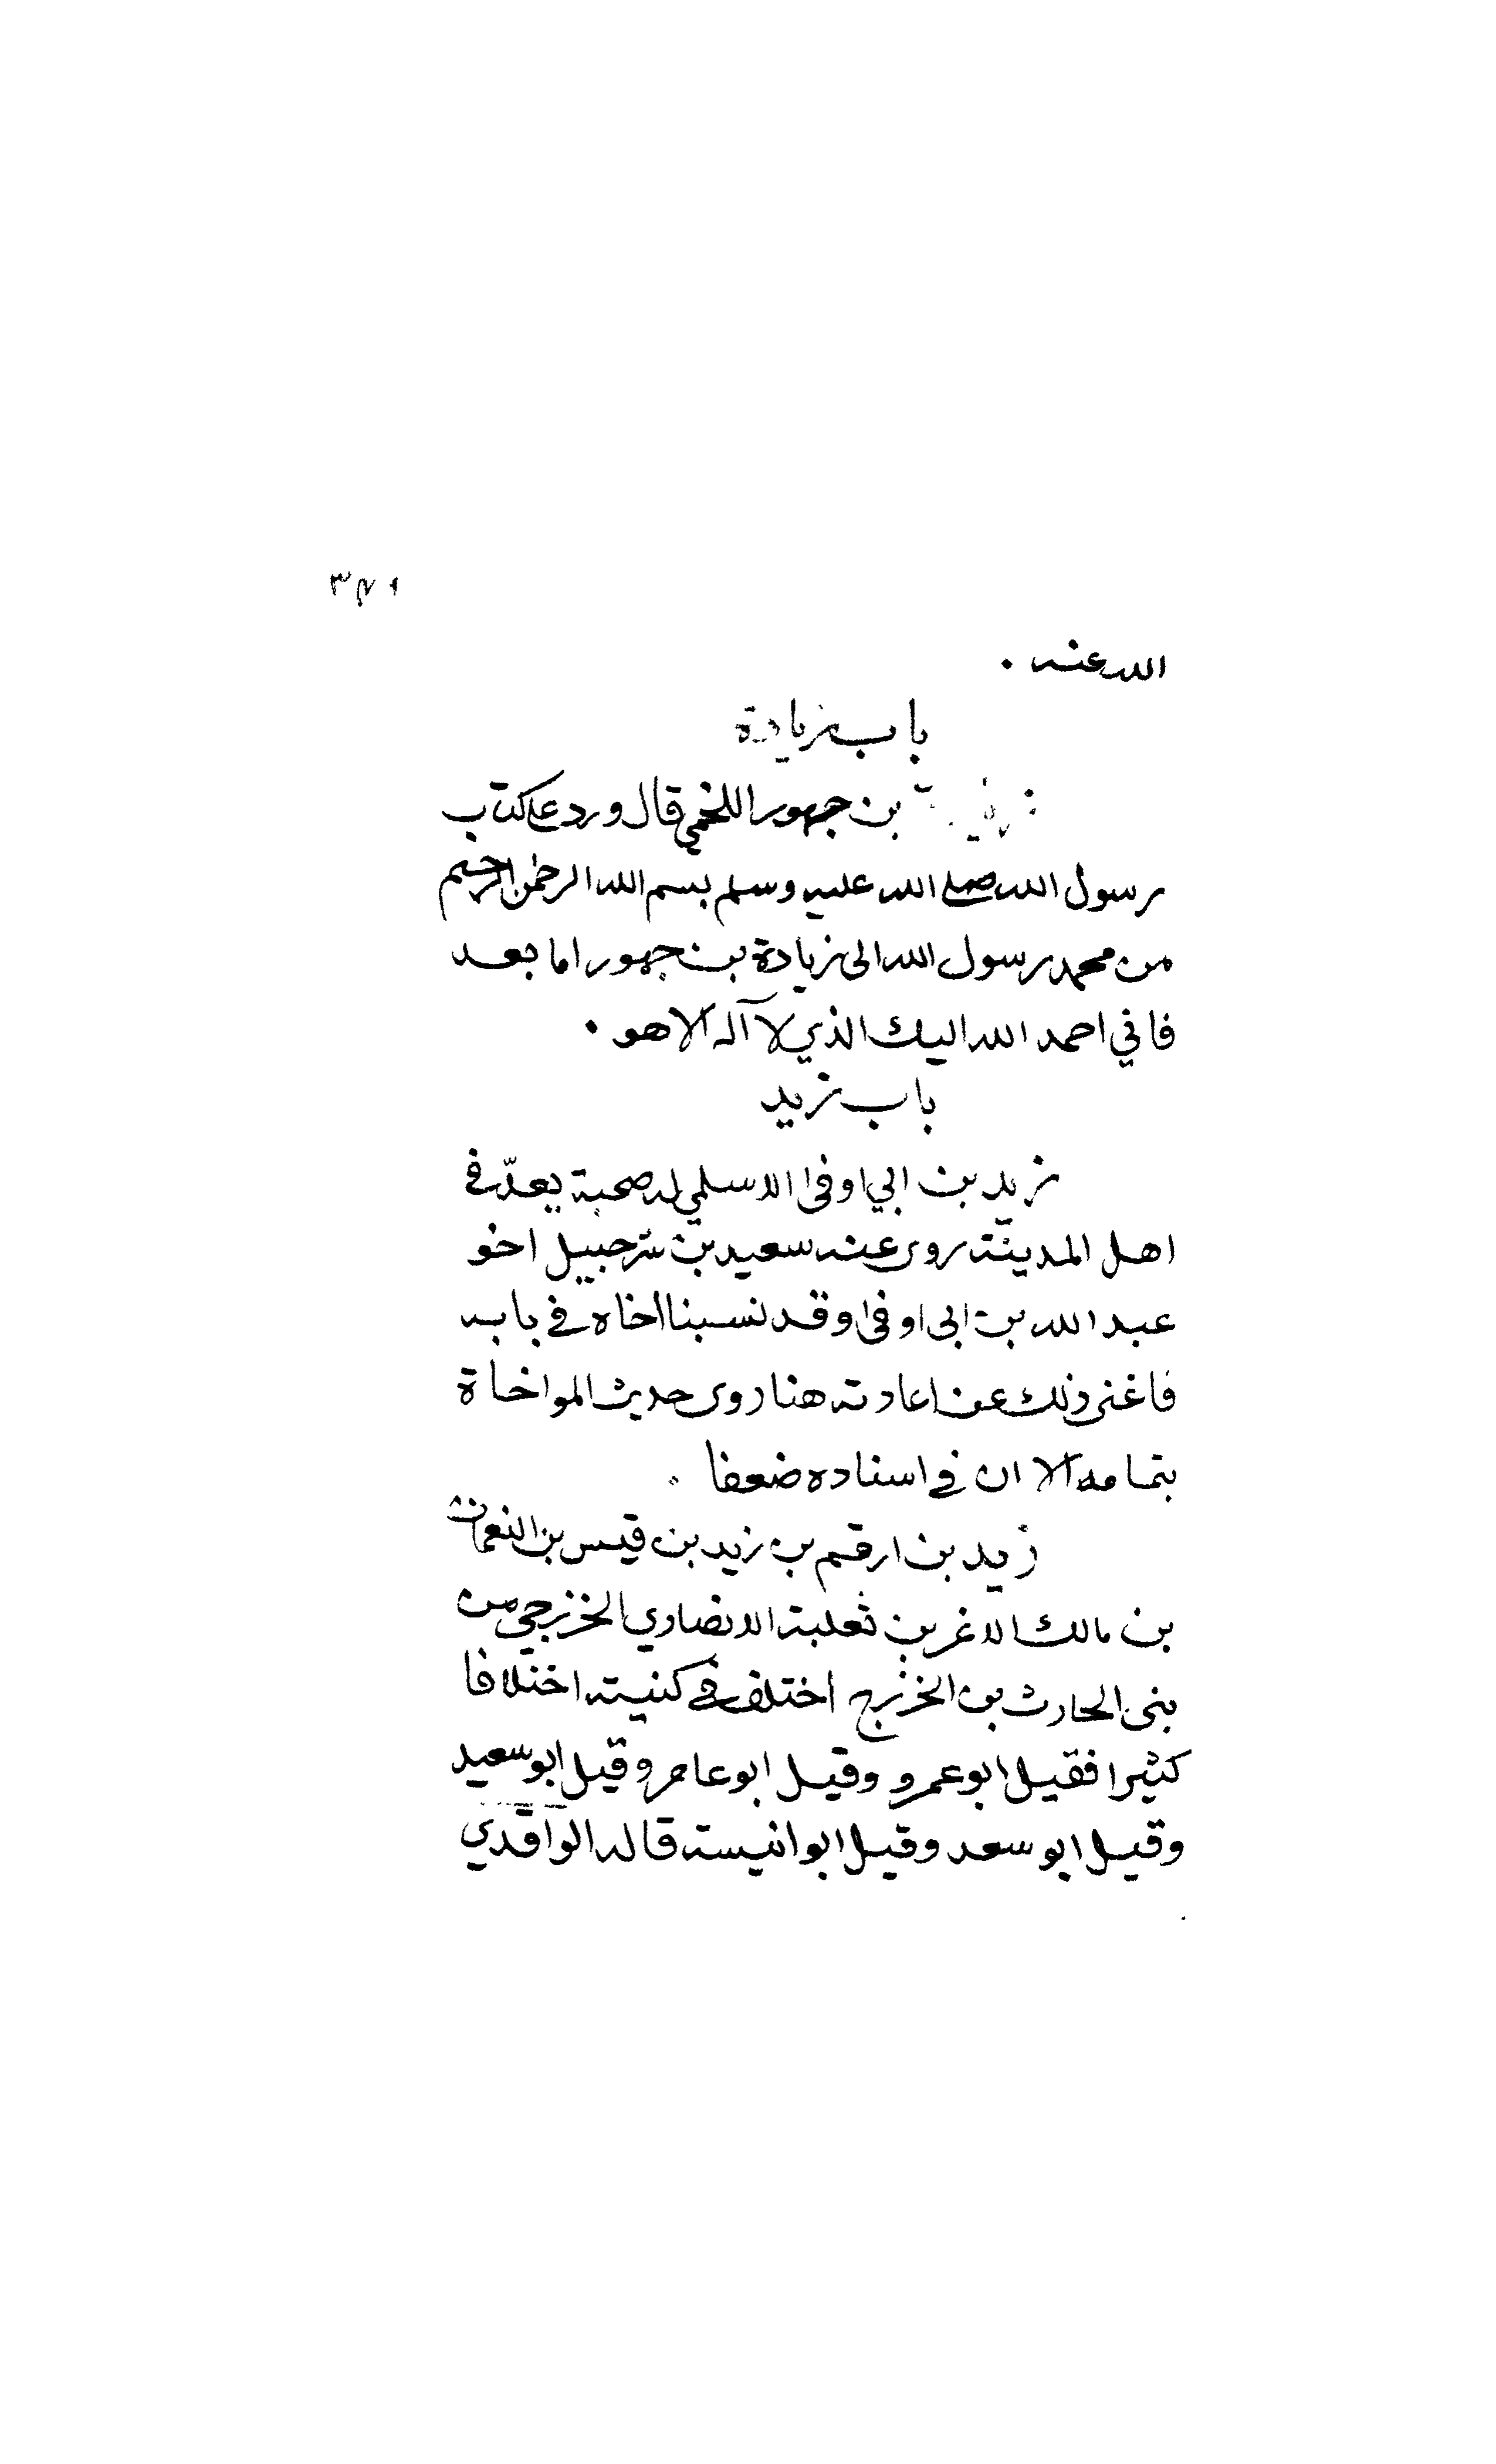 الله عنه .
باب زيادة
بن جهور اللخمي قال ورد على كتاب
رسول الله صلى الله عليه وسلم بسم الله الرحمن الرحيم
من محمد رسول الله الى زيادة بن جهور اما بعد
فاني احمد الله اليك الذي لا آله الا هو .
باب زيد
زيد بن ابي اوفى الاسلمي له صحبة يعدّ في
اهل المدينة روى عنه سعيد بن شرحبيل اخو
عبد الله بن ابى اوفى وقد نسبنا اخاه في بابه
فاغنى ذلك عن اعادته هنا روى حديث المواخاة
بتمامه الا ان في اسناده ضعفا .
زيد بن ارقم بن زيد بن قيس بن النعمان
بن مالك الاغر بن ثعلبة الانصاري الخزرجي من
بنى الحارث بن الخزرج اختلف في كنيته اختلافا
كثيرا فقيل ابو عمرو وقيل ابو عامر وقيل ابو سعيد
وقيل ابو سعد وقيل ابو انيسة قاله الواقدي